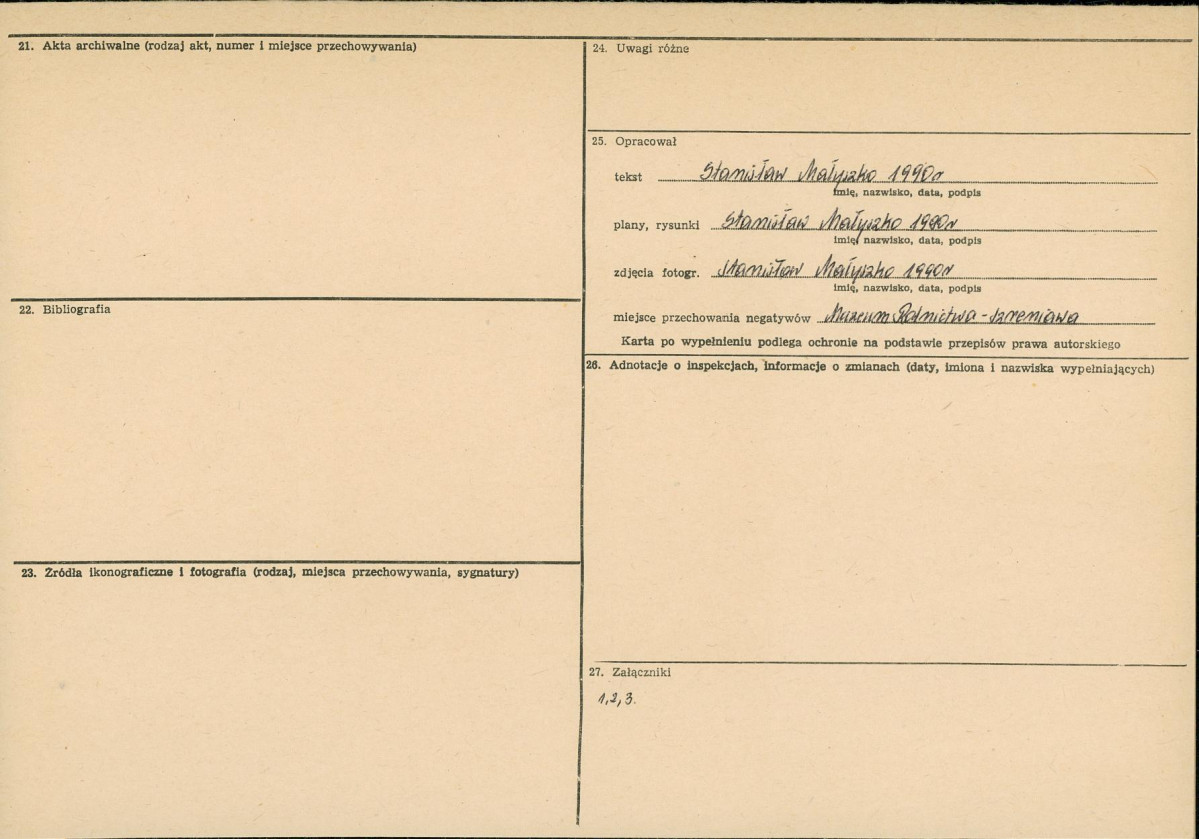 21. Akta archiwalne (rodzaj akt, numer i miejsce przechowywania)
22. Bibliografia
23. Źródła ikonograficzne i fotografia (rodzaj, miejsca przechowywania, sygnatury)
24. Uwagi różne
25. Opracował
tekst Stanisław Małyszko 1990r
imię, nazwisko, data, podpis
plany, rysunki Stanisław Małyszko 1990r
imię, nazwisko, data, podpis
zdjęcia fotogr. Stanisław Małyszko 1990r
imię, nazwisko, data, podpis
miejsce przechowania negatywów Muzeum Rolnictwa - Szreniawa
Karta po wypełnieniu podlega ochronie na podstawie przepisów prawa autorskiego
26. Adnotacje o inspekcjach, informacje o zmianach (daty, imiona i nazwiska wypełniających)
27. Załączniki
1,2,3.